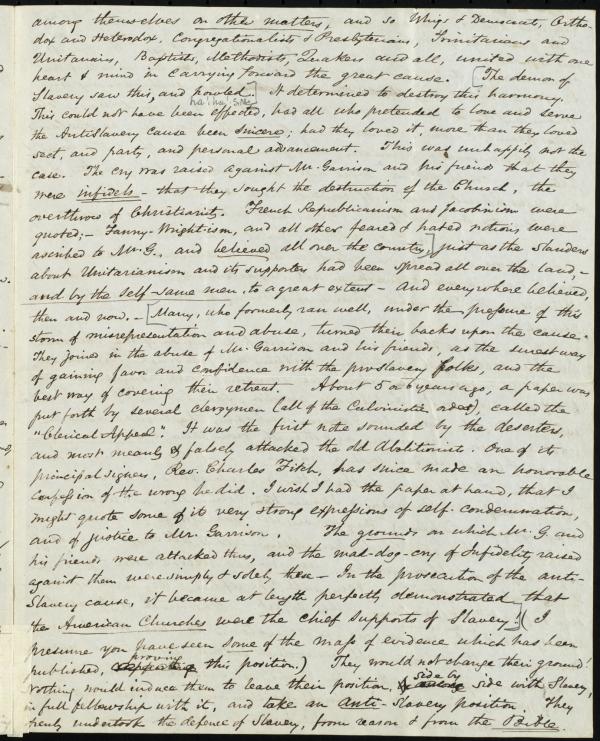 among themselves on other matters, and so Whigs & Democrats, Ortho-
dox and Heterodox, Congregationalists & Presbyterians, Trinitarians and
Unitarians, Baptists, Methodists, Quakers and all, united with one
heart & mind in carrying forward the great cause. [The demon of
Slavery saw this, and howled.] It determined to destroy this harmony.
ha! ha!
This could not have been effected, had all who pretended to love and serve
the Antislavery cause been sincere; had they loved it, more than they loved
sect, and party, and personal advancement. This was unhappily not the
case. The cry was raised against Mr. Garrison and his friends that they
were infidels – that they sought the destruction of the Church, the
overthrow of Christianity. French Republicanism and Jacobinism were
quoted; – Fanny-Wright-ism, and all other feared & hated notions were
ascribed to Mr. G., and believed all over the country] just as the slanders
about Unitarianism and its supporters had been spread all over the land, –
and by the self-same men, to a great extent – and everywhere believed,
then and now. – [Many, who formerly ran well, under the pressure of this
storm of misrepresentation and abuse, turned their backs upon the cause.
They joined in the abuse of Mr. Garrison and his friends, as the surest way
of gaining favor and confidence with the proslavery folks, and the
best way of covering their retreat. About 5 or 6 years ago, a paper was
put forth by several clergymen (all of the Calvinistic order), called the
"Clerical Appeal". It was the first note sounded by the deserters,
and most meanly & falsely attacked the old Abolitionists. One of its
principal signers, Rev. Charles Fitch, has since made an honorable
confession of the wrong he did. I wish I had the paper at hand, that I
might quote some of its very strong expressions of self-condemnation,
and of justice to Mr. Garrison. The grounds on which Mr. G. and
his friends were attacked thus, and the mad-dog-cry of Infidelity raised
against them were simply & solely these – In the prosecution of the anti-
Slavery cause, it became at length perfectly demonstrated that
the American Churches were the chief supports of Slavery! (I
presume you have seen some of the mass of evidence which has been
published, proving this position.) They would not change their ground!
Nothing would induce them to leave their position, side by side with Slavery,
in full fellowship with it, and take an Anti-Slavery position. They
undertook the defence of Slavery, from reason & from the Bible.